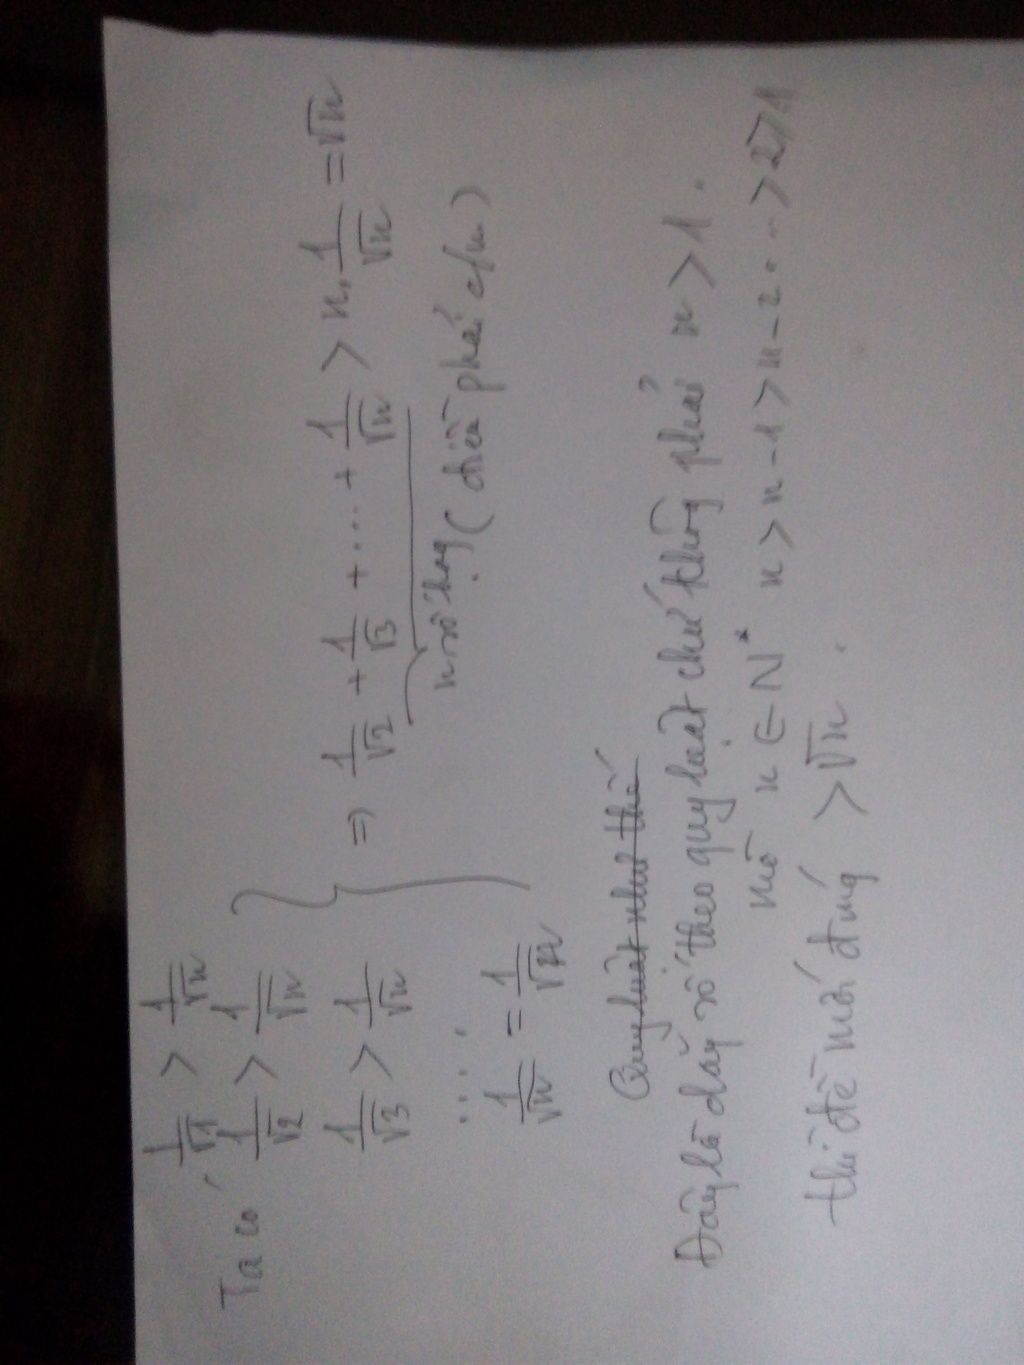 Ta có 1/√1 > 1/√n
1/√2 > 1/√n
1/√3 > 1/√n
....
1/√n = 1/√n
=> 1/√2 + 1/√3 + ... + 1/√n > n. 1/√n = √n
n số hạng (điều phải c/m)
Quy luật như thế
Đây là dãy số theo quy luật chứ không phải n > 1.
mà n ∈ N* n > n-1 > n-2 ... > 2 > 1
thì đề mới đúng > √n.